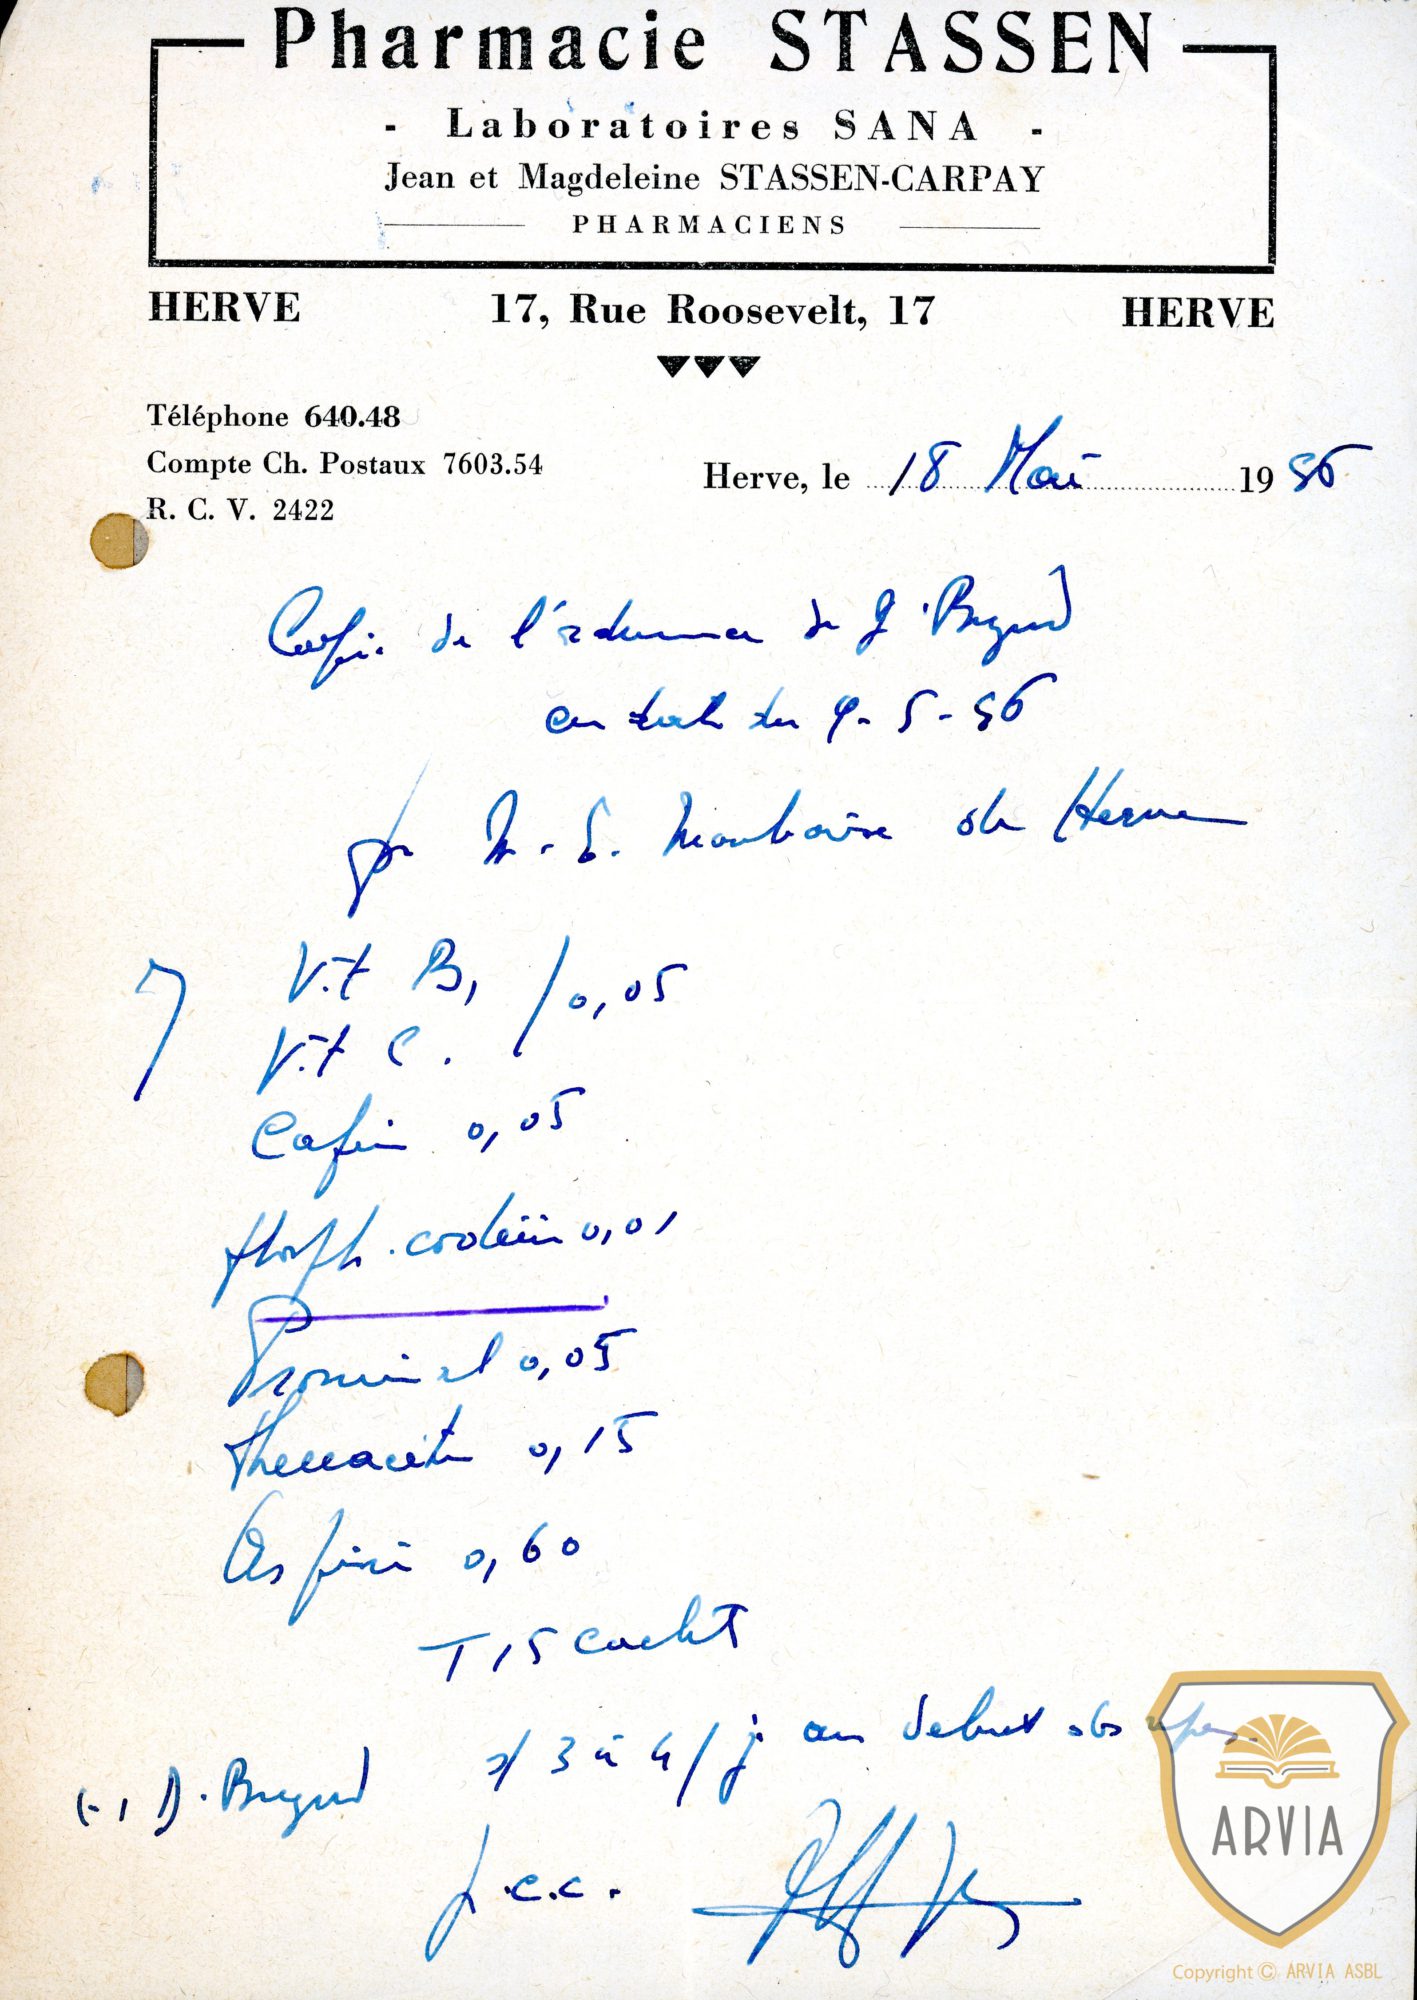 Pharmacie STASSEN
- Laboratoires SANA -
Jean et Magdeleine STASSEN-CARPAY
PHARMACIENS
HERVE 17, Rue Roosevelt, 17 HERVE
Téléphone 640.48
Compte Ch. Postaux 7603.54
R. C. V. 2422
Herve, le 18 Mai 1956
Copie de l'ordonnance de
en date du 9-5-56
pr M. E. de Herve
Vit B1 / 0,05
Vit C.
Cafein 0,05
Phosph. codein 0,01
Prominal 0,05
Phenacetin 0,15
Aspirin 0,60
T 15 cachets
s/ 3 à 4 / j au debut des repas.
p.c.c.
ARVIA
Copyright © ARVIA ASBL